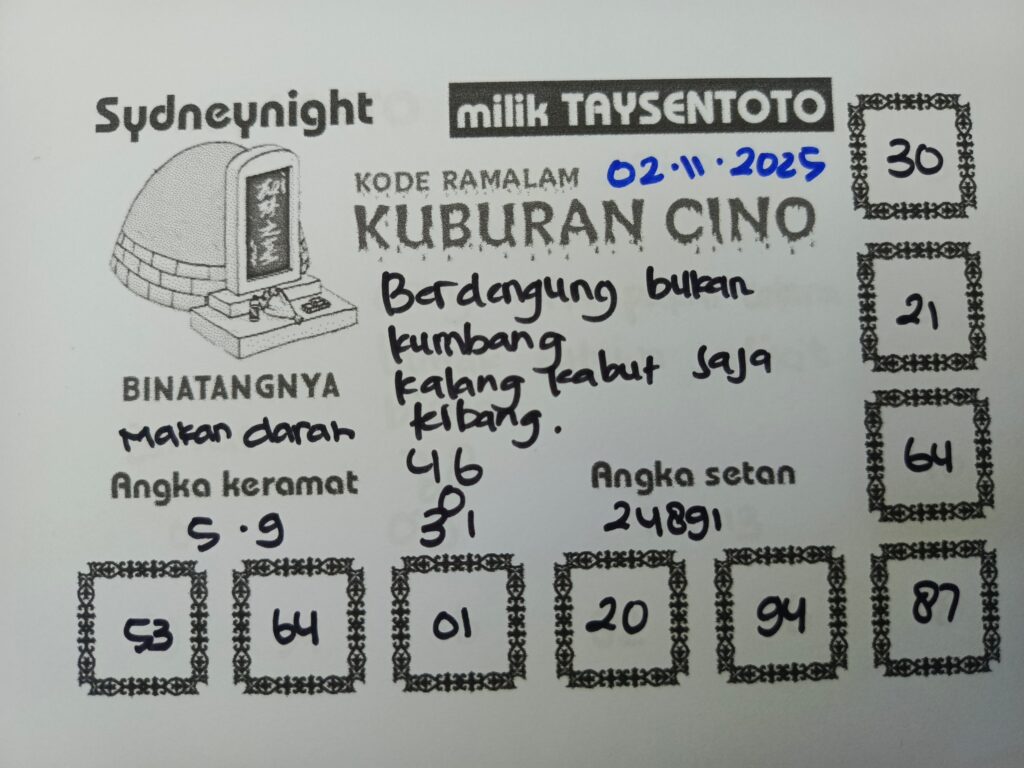 Sydneynight
milik TAYSENTOTO
KODE RAMALAM 02.11.2025
KUBURAN CINO
Berdengung bukan
kumbang
kalang kabut saja
kibang.
BINATANGNYA
Makan darah
Angka keramat
5.9
46
0
31
Angka setan
24891
30
21
64
53
64
01
20
94
87